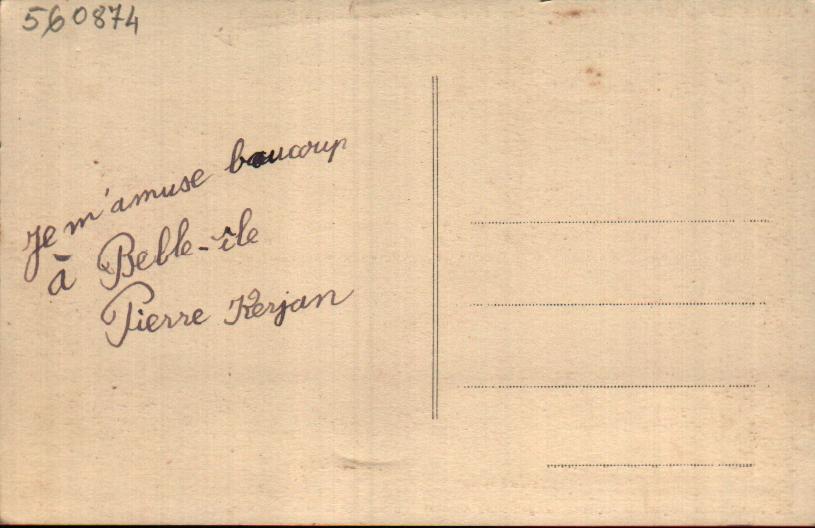 560874
Je m'amuse beaucoup
à Belle-île
Pierre Kerjan